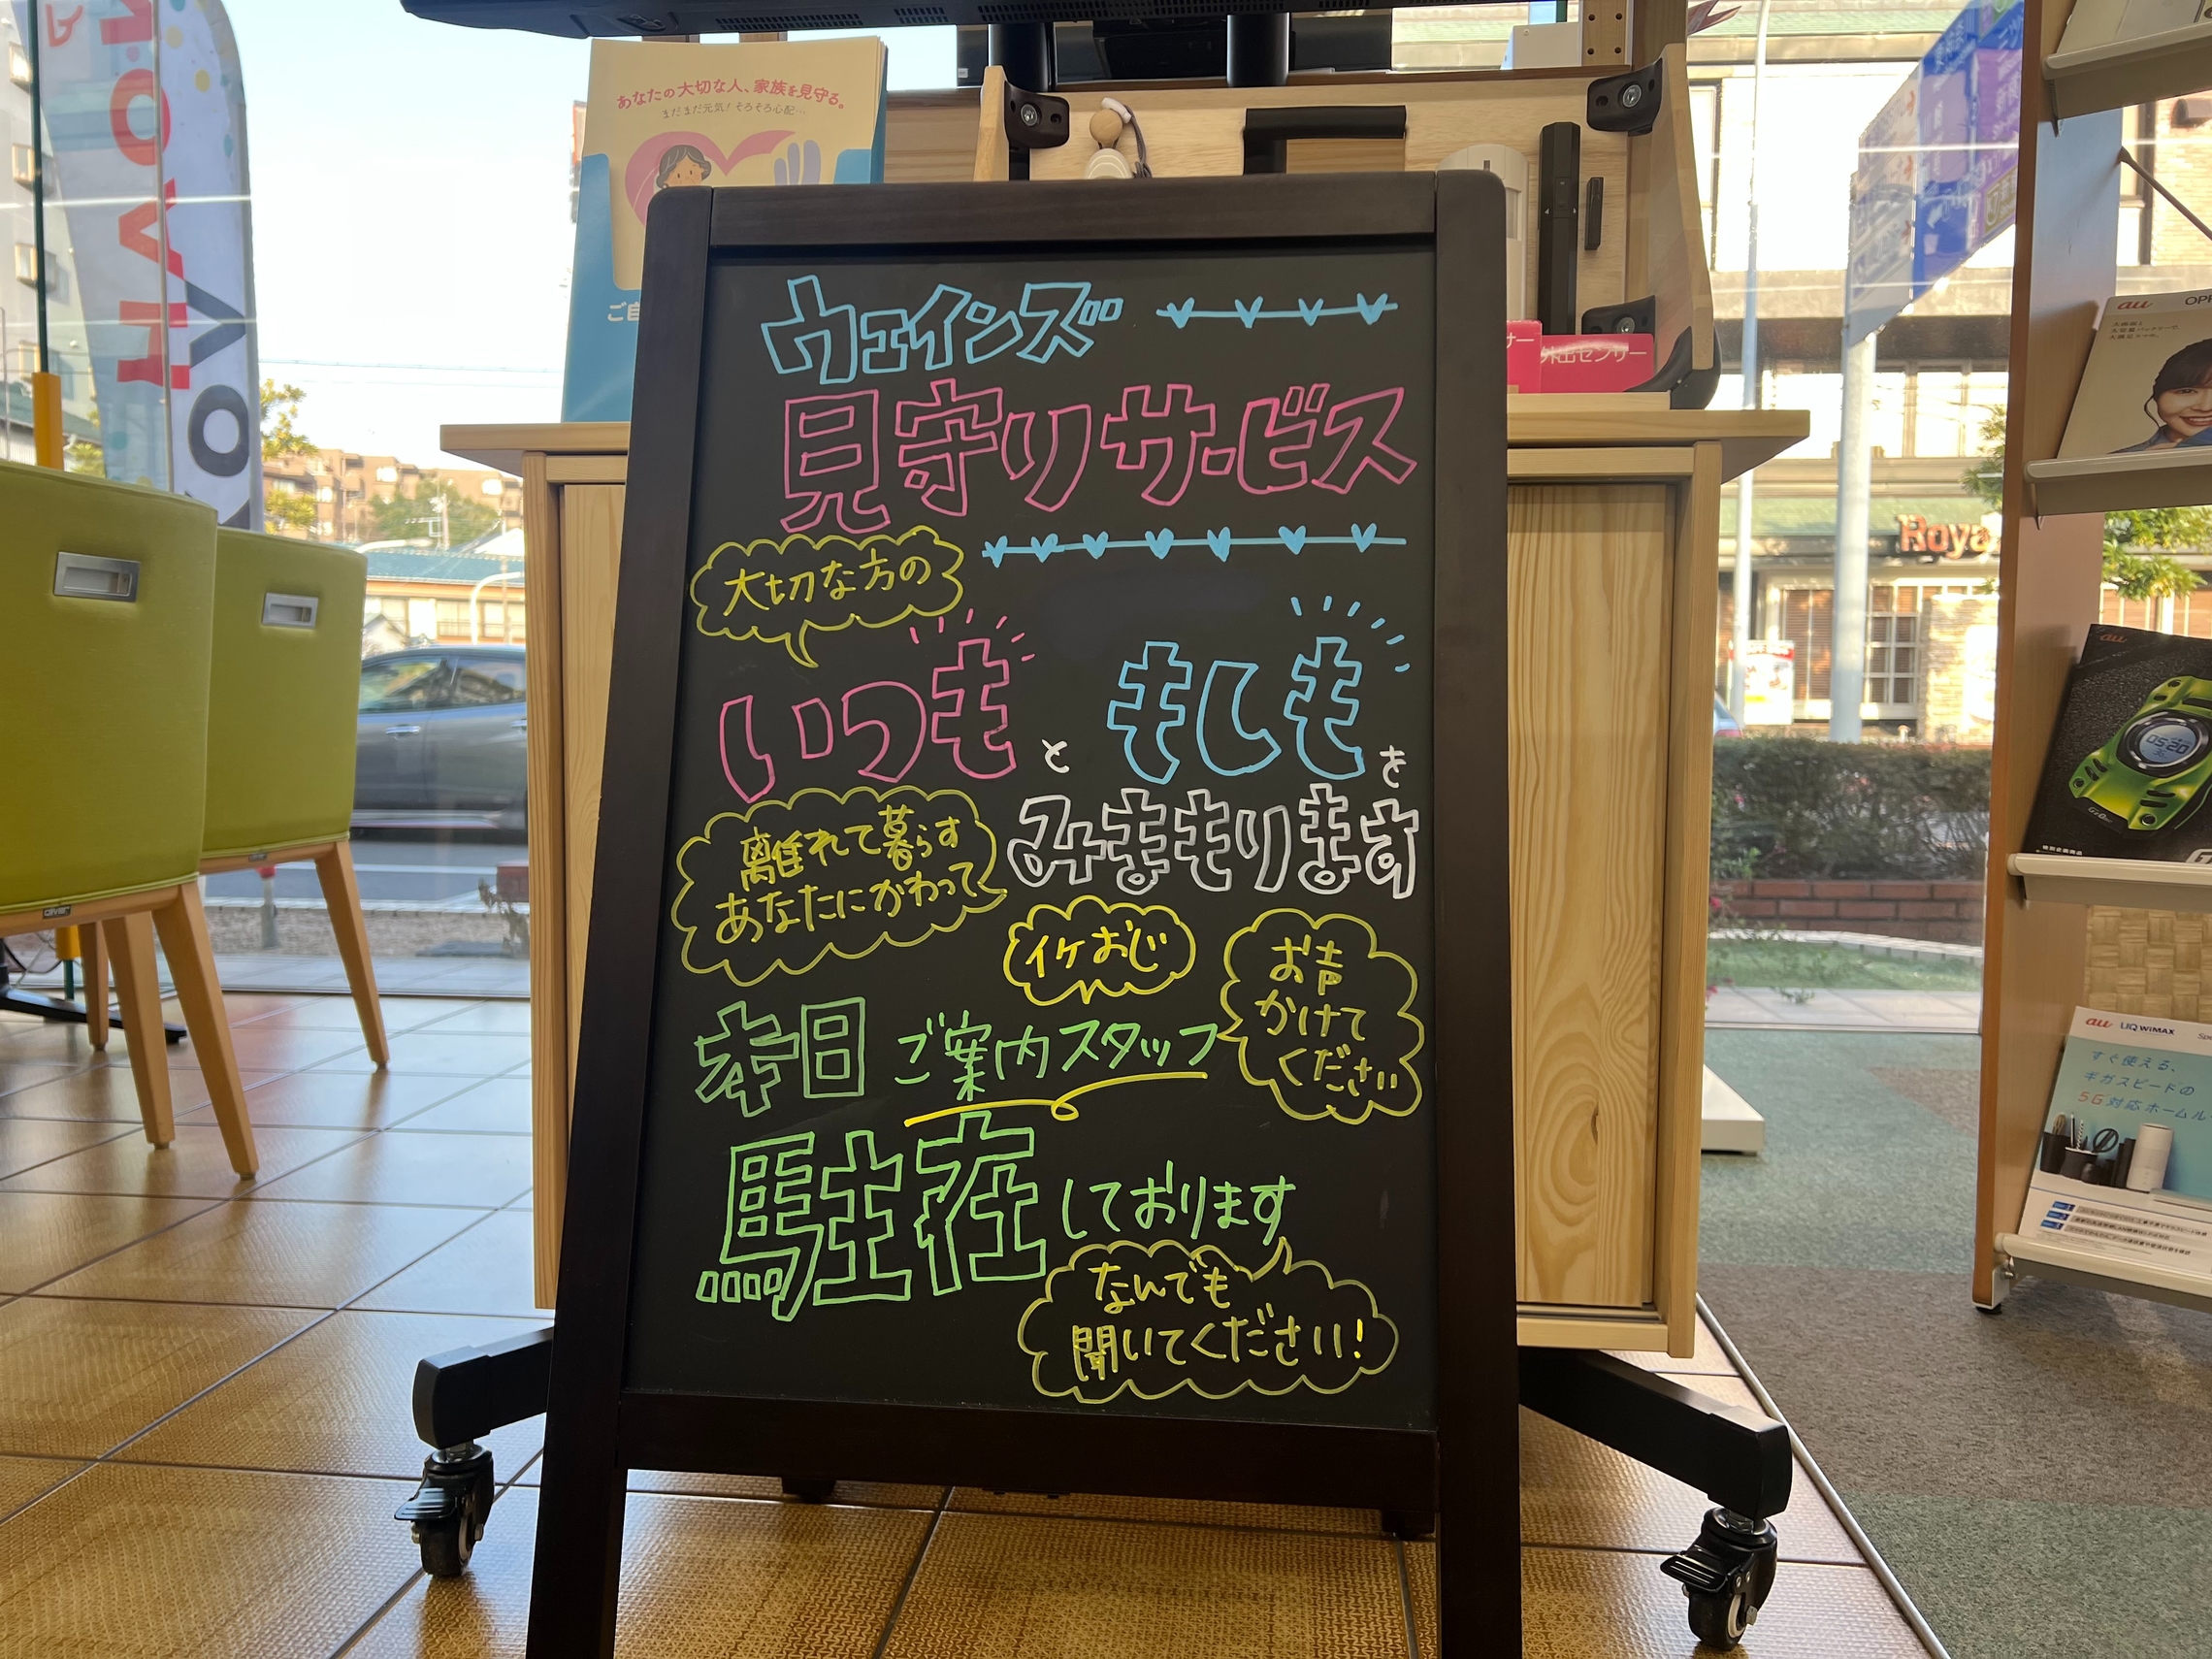 あなたの大切な人、家族を見守る。
まだまだ元気！そろそろ心配…
ウェインズ
見守りサービス
大切な方の
いつもともしもを
みまもります
離れて暮らす
あなたにかわって
イケおじ
お声
かけて
ください
本日 ご案内スタッフ
駐在しております
なんでも
聞いてください!
外出センサー
Roya
au
au
05:20
au UQ WiMAX
すぐ使える、
ギガスピードの
5G対応ホームル